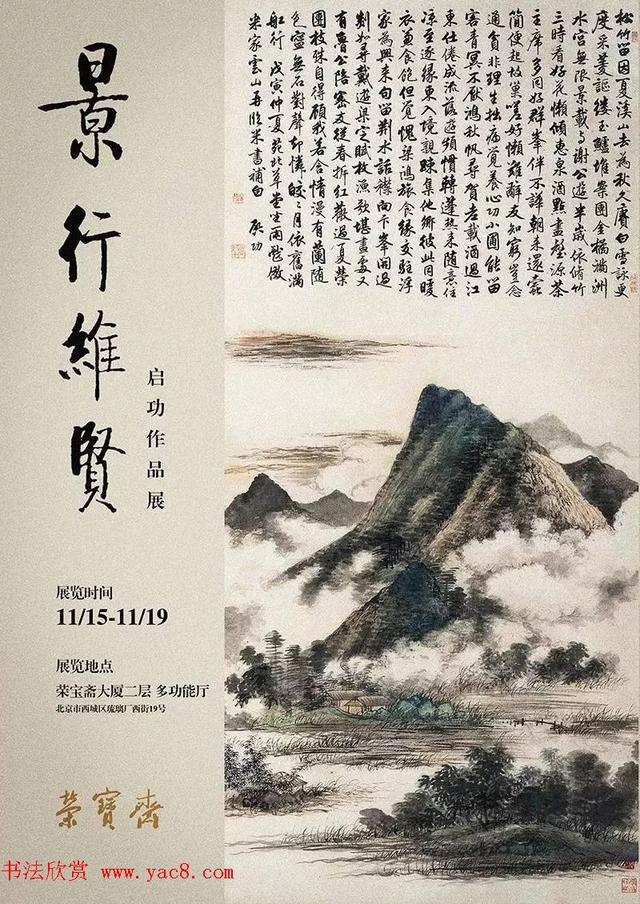 景行維賢
启功作品展
展览时间
11/15-11/19
展览地点
荣宝斋大厦二层 多功能厅
北京市西城区琉璃厂西街19号
榮寶齋
松竹留因夏溪山去為秋久賡白雪詠更
度采菱謳縷玉鱸堆案團金橘滿洲
水宮無限景載與謝公遊半歲依脩竹
三時看好花懶傾惠泉酒點盡壑源茶
主席多同好群峯伴不譁朝来還蠹
簡便起故巢嗟好懶難辭友知窮豈念
通貧非理生拙病覺養心功小圃能留
客青冥不厭鴻秋帆尋賀老載酒過江
東仕倦成流落遊頻慣轉蓬熱来隨意住
涼至逐緣東入境親疎集他鄉彼此同暖
衣兼食飽但覺愧梁鴻旅食緣交駐浮
家為興来句留荊水話襟向卞峯開過
剡如尋戴遊梁定賦枚漁歌堪畫處又
有魯公陪密友從春折紅薇過夏榮
團枝殊自得顧我若含情漫有蘭隨
色寧無石對聲却憐皎皎月依舊滿
船行 戊寅仲夏苑北草堂坐雨戲倣
米家雲山再臨米書補白 啟功
书法欣赏 www.yac8.com